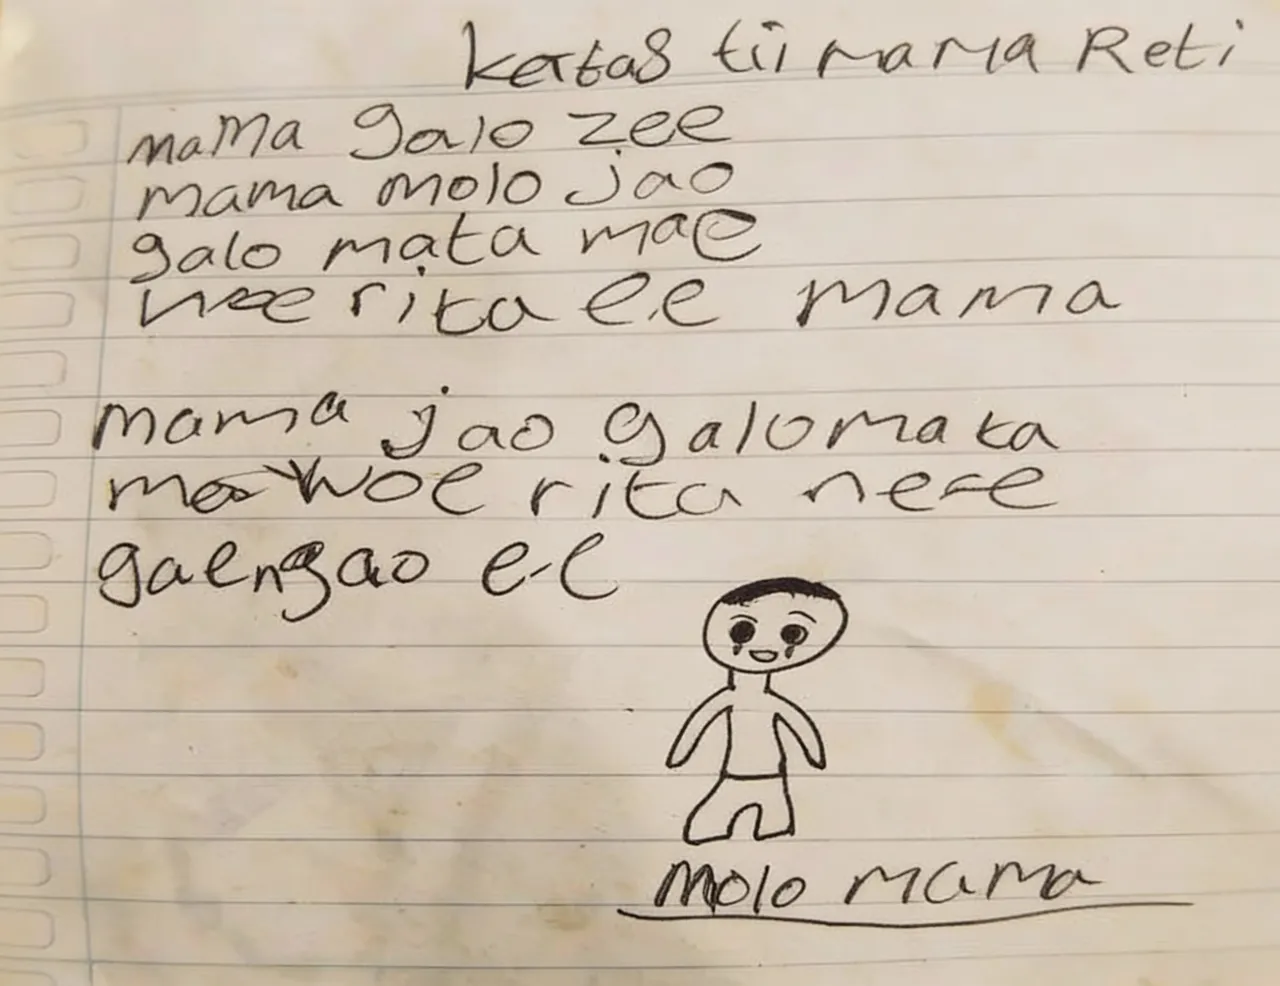 kertas tii mama Reti
mama galo zee
mama molo jao
galo mata mae
rita ee mama
mama jao galo mata
mae woe rita ne-e
gaengao ee
molo mama